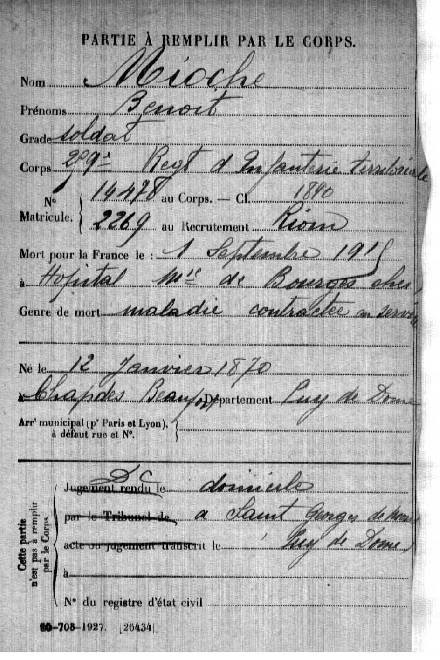 PARTIE À REMPLIR PAR LE CORPS.
Nom Mioche
Prénoms Benoit
Grade soldat
Corps Regt d'Infanterie territoriale
N° 14478 au Corps. — Cl. 1890
Matricule. 2269 au Recrutement Riom
Mort pour la France le : 1 Septembre 1915
à Hopital de Bourges cher
Genre de mort maladie contractée en service
Né le 12 Janvier 1870
à Chapdes Beaufort Département Puy de Dome
Arrt municipal (pr Paris et Lyon),
à défaut rue et N°.
Cette partie
n'est pas à remplir
par le Corps
Dc
Jugement rendu le domicile
par le Tribunal de a Saint Georges de
acte ou jugement transcrit le Puy de Dome
à
N° du registre d'état civil
10-708-1927. [26434]